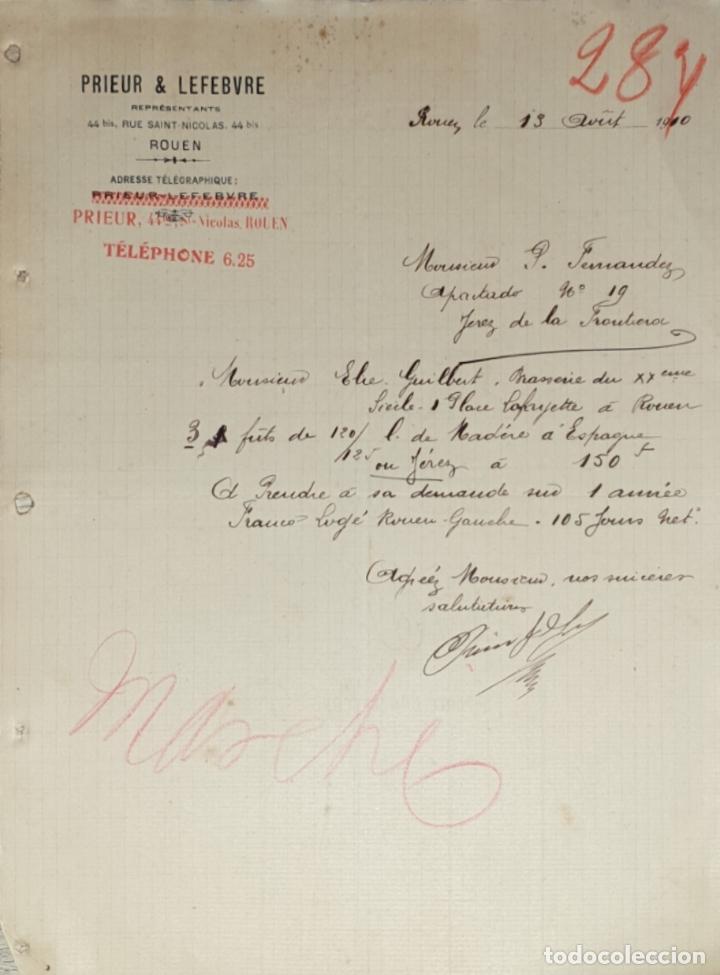 287
PRIEUR & LEFEBVRE
REPRÉSENTANTS
44 bis, RUE SAINT-NICOLAS, 44 bis
ROUEN
Rouen, le 13 Août 1910
ADRESSE TÉLÉGRAPHIQUE:
PRIEUR-LEFEBVRE
PRIEUR, St-Nicolas, ROUEN
TÉLÉPHONE 6.25
Monsieur P. Fernandez
Apartado No 19
Jerez de la Frontera
Monsieur Elie Guilbert, Brasserie du XXeme
Siècle 1 Place Lafayette à Rouen
3 fûts de 120/ l. de Madère d'Espagne
125 ou Jérez à 150 f
A Prendre à sa demande sur 1 année
Franco Logé Rouen-Gauche. 105 Jours Net.
Agréez Monsieur, nos sincères
salutations
Marche
todocoleccion.net